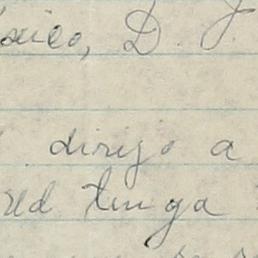 México, D. F.
dirijo a
ted tenga